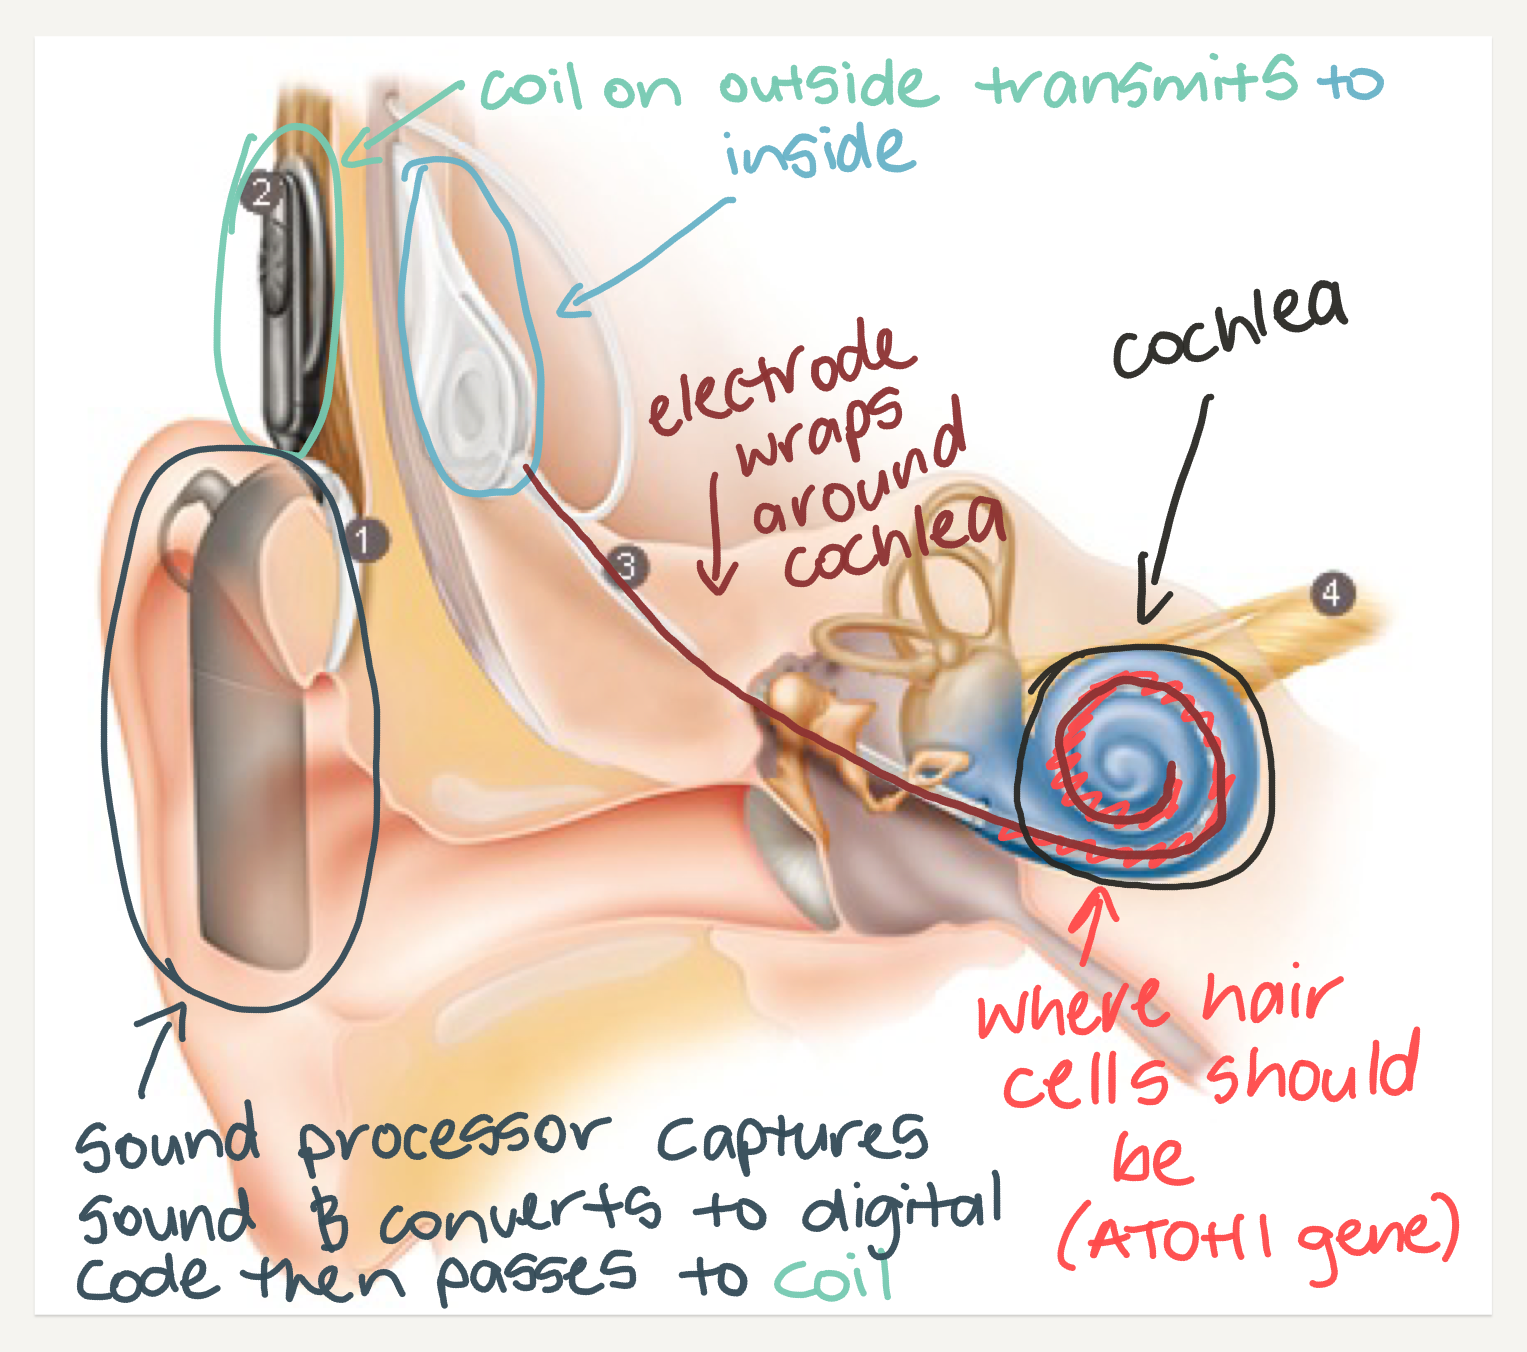 coil on outside transmits to
inside
2
cochlea
electrode
wraps
around
cochlea
1
3
4
where hair
cells should
be
(ATOH1 gene)
sound processor captures
sound & converts to digital
code then passes to coil